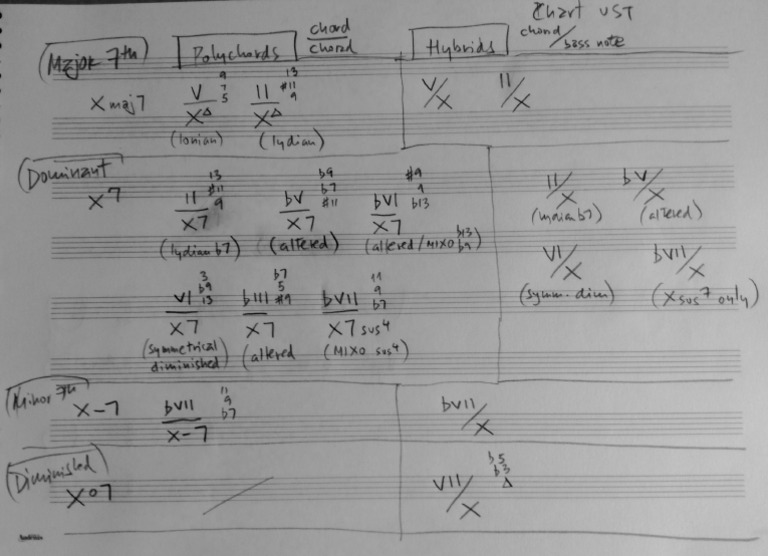 Chart UST
Major 7th
Polychords
chord
chord
Hybrids
chord
/bass note
X maj7
V 9 7 5
XΔ
(Ionian)
II 13 #11 9
XΔ
(lydian)
V/X
II/X
Dominant
X7
II 13 #11 9
X7
(lydian b7)
bV b9 b7 #11
X7
(altered)
bVI #9 9 b13
X7
(altered/MIXO b13 b9)
II/X
(lydian b7)
bV/X
(altered)
VI 3 b9 13
X7
(symmetrical
diminished)
bIII b7 5 #9
X7
(altered
bVII 11 9 b7
X7 sus4
(MIXO sus4)
VI/X
(symm. dim)
bVII/X
(Xsus7 only)
Minor 7th
X-7
bVII 11 9 b7
X-7
bVII/X
Diminished
Xo7
VII/X
b5 b3 Δ